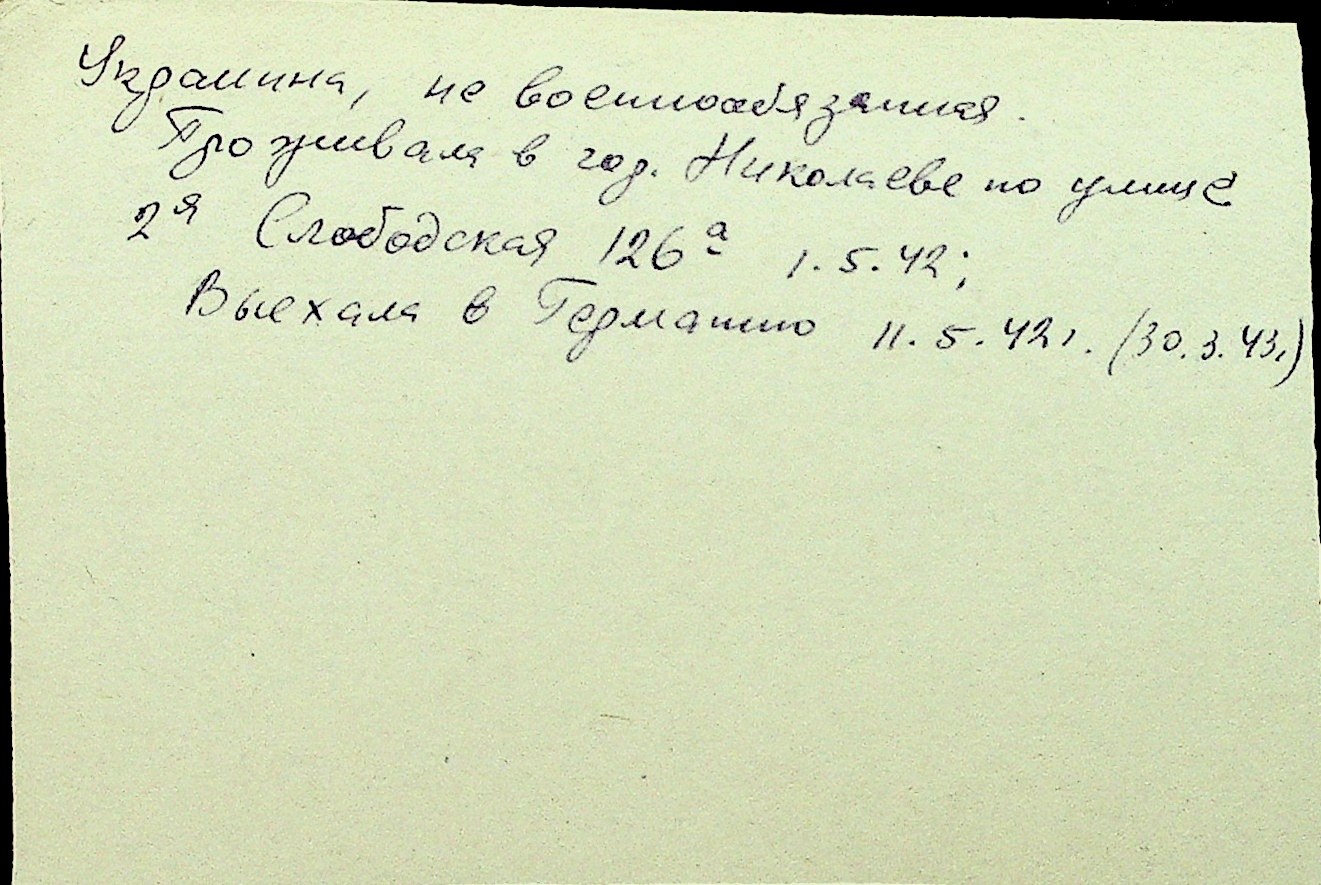 Украинка, не военнообязанная.
Проживала в гор. Николаеве по улице
2я Слободская 126а 1.5.42;
Выехала в Германию 11.5.42г. (30.3.43г)